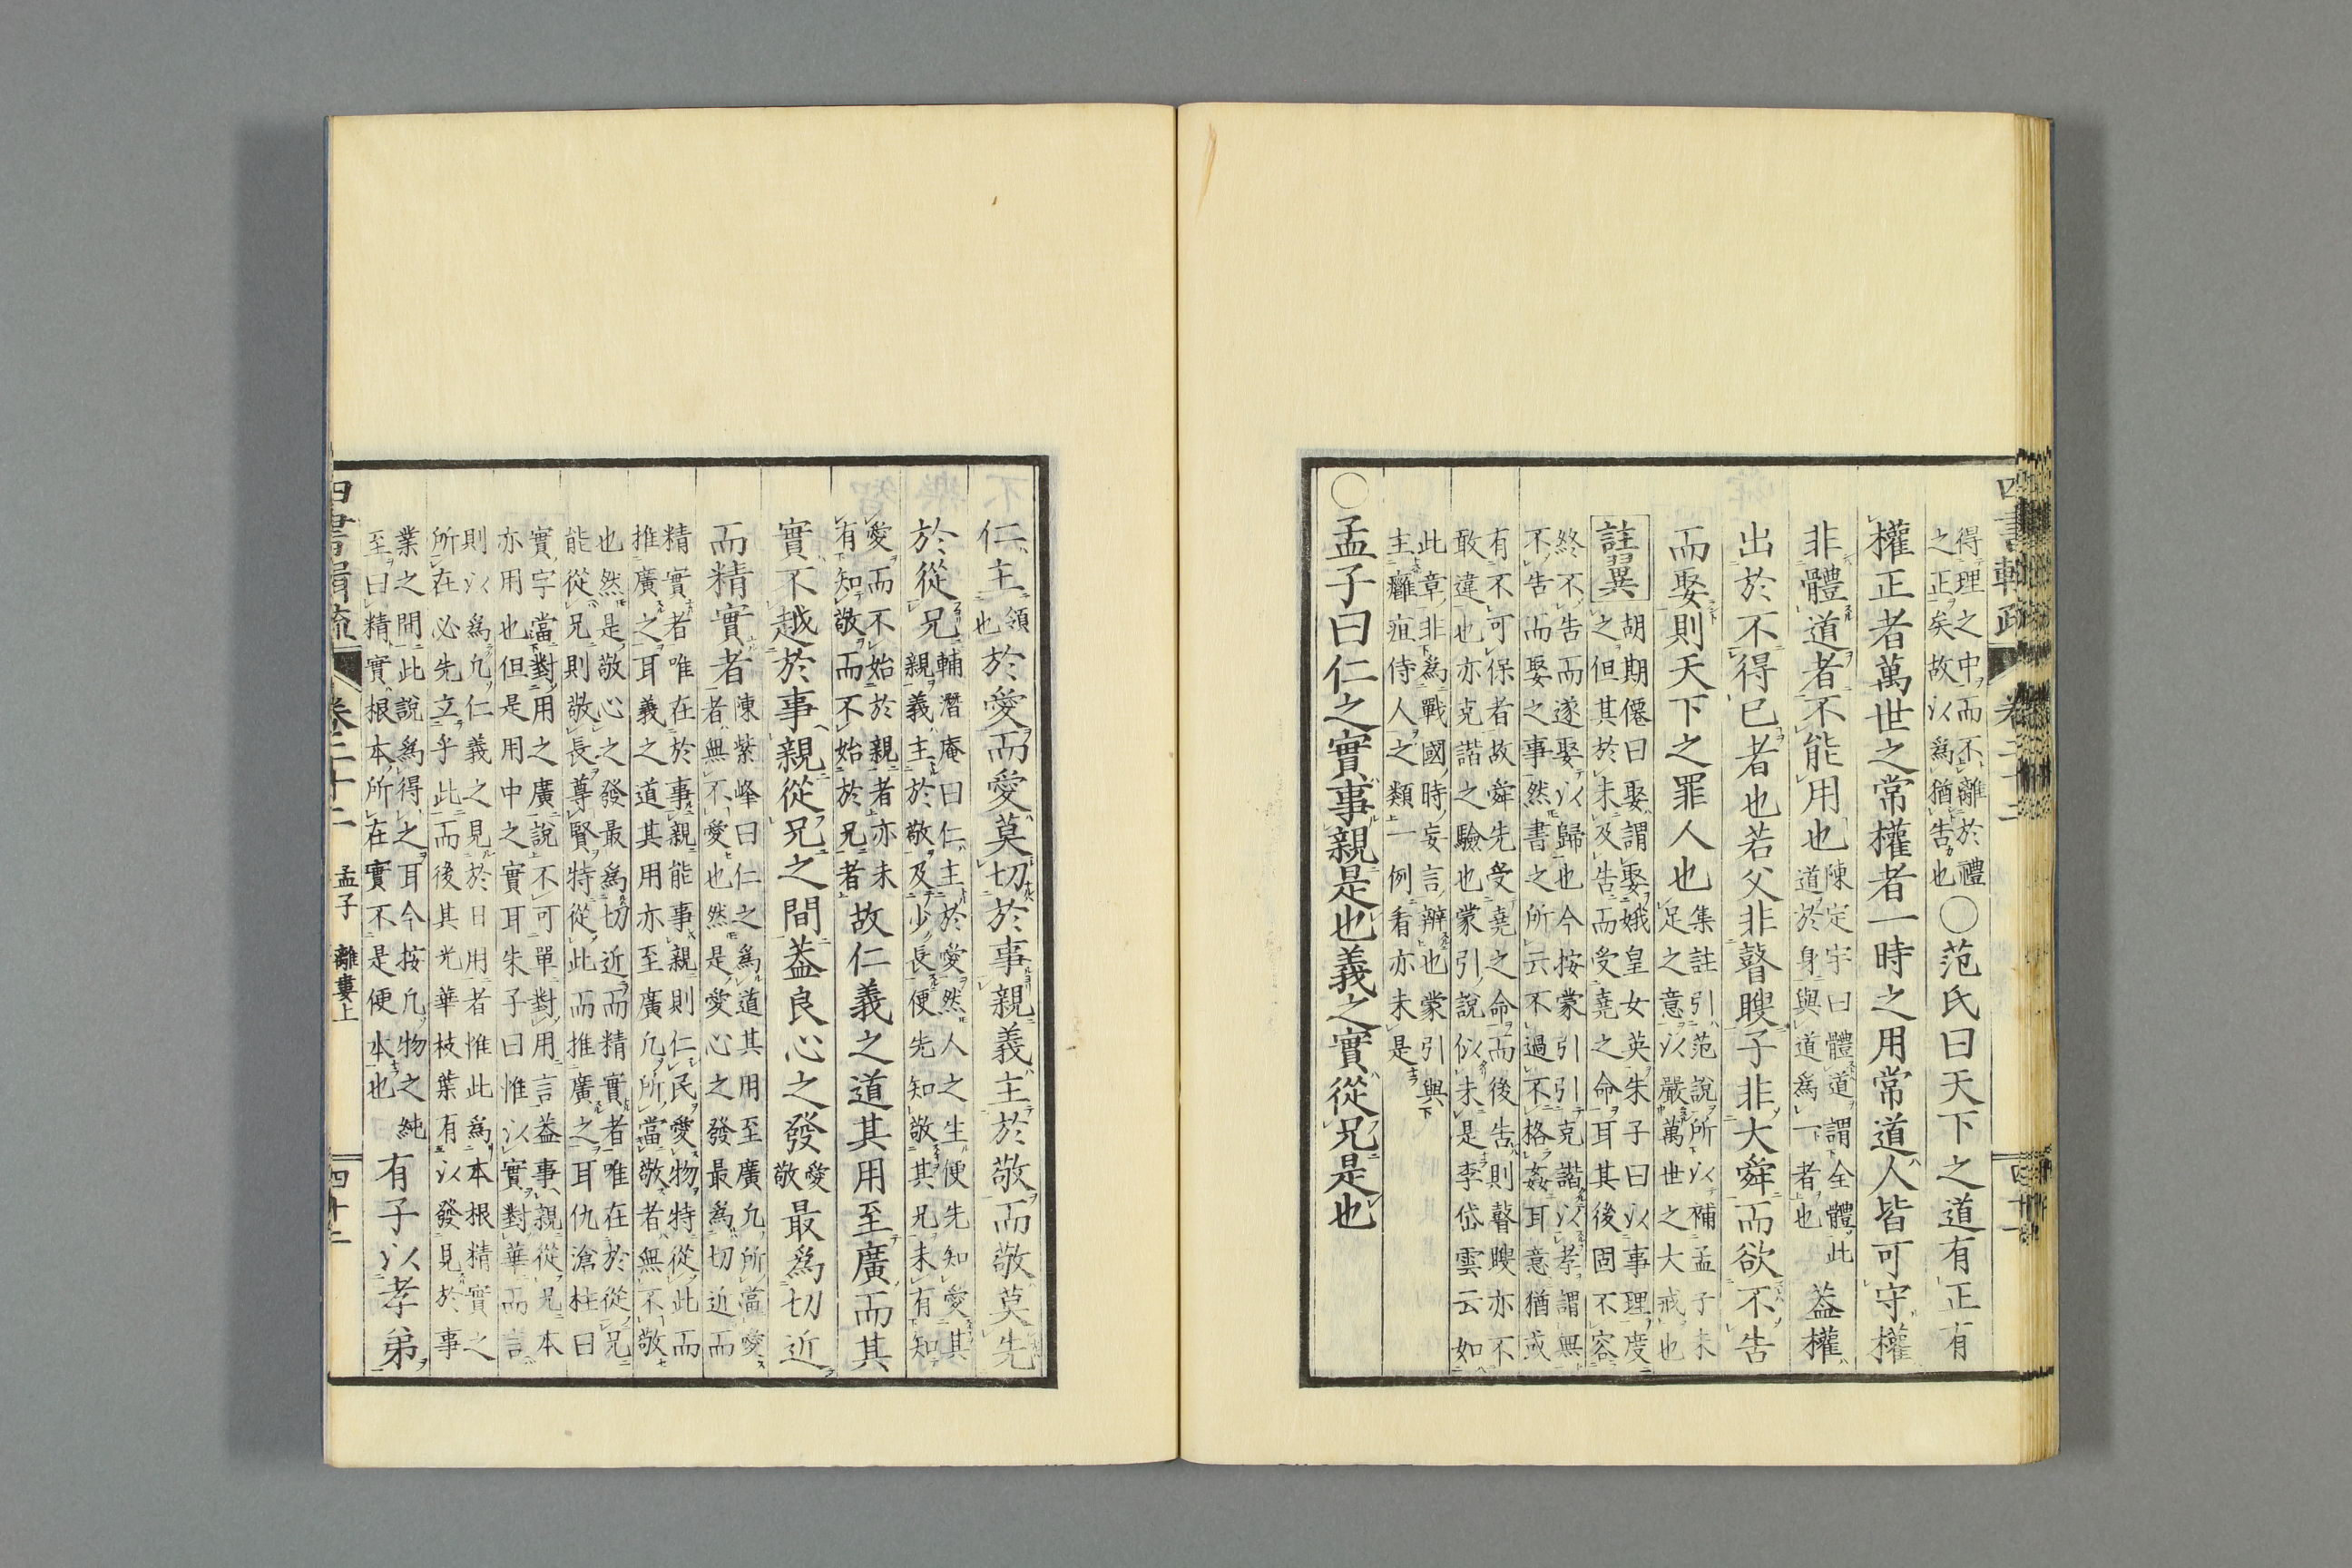 得理之中而不離於禮
之正矣故以爲猶告也
〇范氏曰天下之道有正有
權正者萬世之常權者一時之用常道人皆可守權
非體道者不能用也
陳定宇曰體道謂全體此
道於身與道爲一者也
蓋權
出於不得已者也若父非瞽瞍子非大舜而欲不告
而娶則天下之罪人也
集註引范說所以補孟子未
足之意以嚴萬世之大戒也
註翼
胡期僊曰娶謂娶娥皇女英朱子曰以事理度
之但其於未及告而受堯之命耳其後固不容
終不告而遂娶以歸也今按蒙引引克諧以孝謂無
不告而娶之事然書之所云不過不格姦耳意猶或
有不可保者故舜先受堯之命而後告則瞽瞍亦不
敢違也亦克諧之驗也蒙引說似未是李岱雲云如
此章非爲戰國時妄言辨也蒙引與
主癰疽侍人之類一例看亦未是
〇孟子曰仁之實事親是也義之實從兄是也
仁主
領
也
於愛而愛莫切於事親義主於敬而敬莫先
於從兄
輔潛庵曰仁主於愛然人之生便先知愛其
親義主於敬及少長便先知敬其兄未有知
愛而不始於親者亦未
有知敬而不始於兄者
故仁義之道其用至廣而其
實不越於事親從兄之間蓋良心之發
愛
敬
最爲切近
而精實者
陳紫峰曰仁之爲道其用至廣凡所當愛
者無不愛也然是愛心之發最爲切近而
精實者唯在於事親能事親則仁民愛物特從此而
推廣之耳義之道其用亦至廣凡所當敬者無不敬
也然是敬心之發最爲切近而精實者唯在於從兄
能從兄則敬長尊賢特從此而推廣之耳仇滄柱曰
實字當對用之廣說不可單對用言蓋事親從兄本
亦用也但是用中之實耳朱子曰惟以實對華而言
則以爲凡仁義之見於日用者惟此爲本根精實之
所在必先立乎此而後其光華枝葉有以發見於事
業之間此說爲得之耳今按凡物之純
至曰精實根本所在實不是便本也
有子以孝弟
四書輯疏 卷二十二 孟子 離婁上 四十二